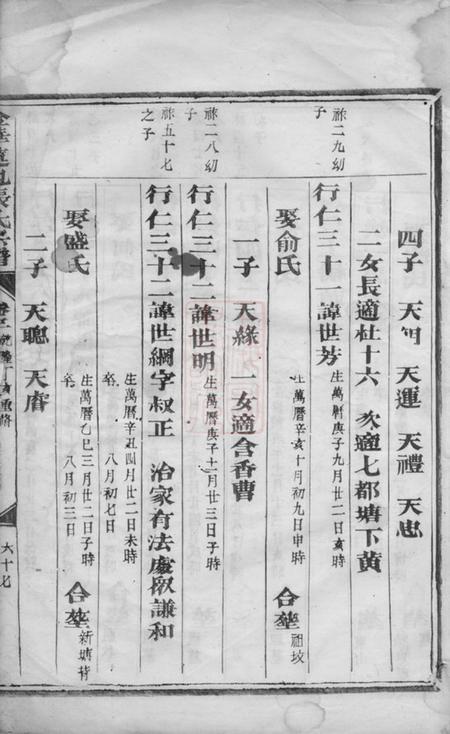 四子 天明 天運 天禮 天忠
二女長適杜十六 次適七都塘下黃
祢二九幼子
行仁三十一諱世芳 生萬曆庚子九月廿二日亥時
娶俞氏 生萬曆辛亥十月初九日申時 合塟祖坟
子 天緣 一女適含香曹
祢二八幼子
行仁三十二諱世明 生萬曆庚子十二月廿三日子時
祢五十七之子
行仁三十二諱世綱字叔正 治家有法處眾謙和
生萬曆辛丑四月廿二日未時
卒 八月初七日
娶盛氏 生萬曆乙巳三月廿二日子時
卒 八月初三日 合塟新塘
二子 天聰 天睿
張氏宗譜
重修
六十七